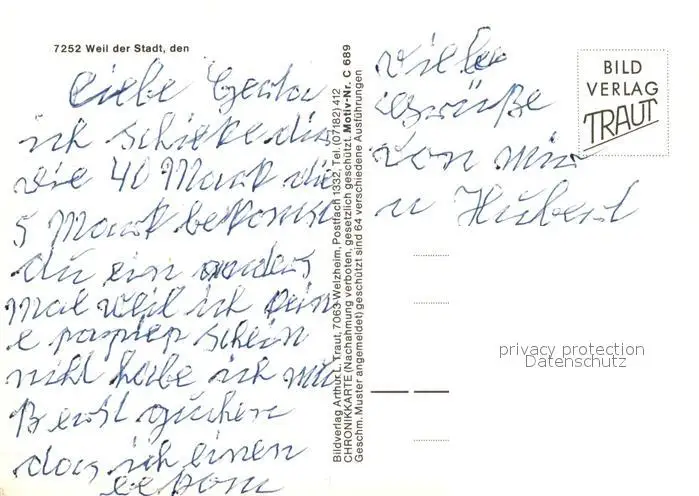 7252 Weil der Stadt, den
Liebe Gerta
ich schicke dir
die 40 Mark die
5 Mark bekomst
du ein anders
Mal weil ich kein
e papier schein
nicht habe ich mus
erst guchen
das ich einen
bekom
Bildverlag Arthur L. Traut, 7063 Welzheim, Postfach 1332, Tel. (07182) 412
CHRONIKKARTE (Nachahmung verboten, gesetzlich geschützt. Motiv-Nr. C 689
Geschm. Muster angemeldet) geschützt sind 64 verschiedene Ausführungen
viele
grüße
von mir
u Hubert
BILD
VERLAG
TRAUT
privacy protection
Datenschutz